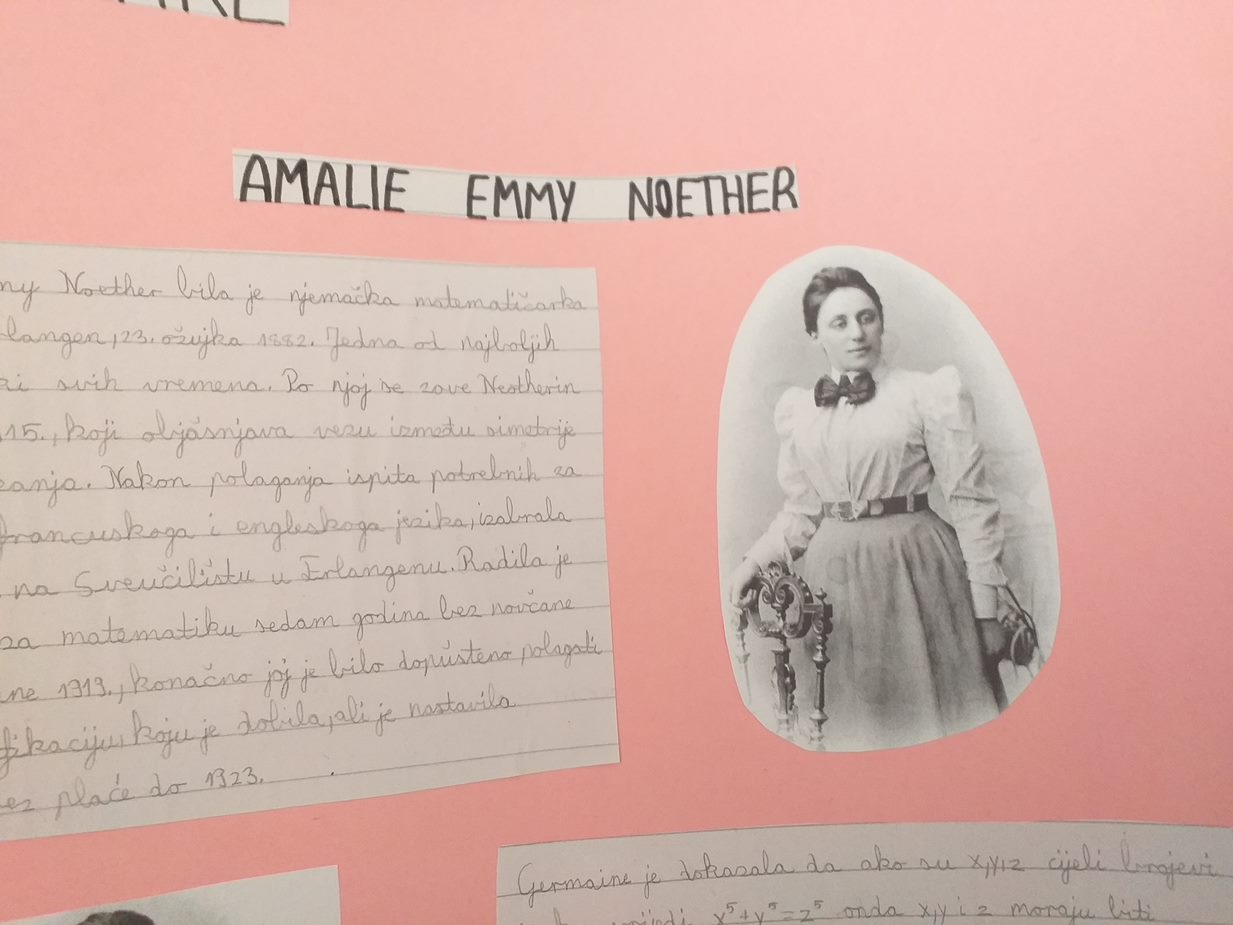 AMALIE EMMY NOETHER
ny Noether bila je njemačka matematičarka
langen, 23. ožujka 1882. Jedna od najboljih
zi svih vremena. Po njoj se zove Neotherin
15., koji objašnjava vezu između simetrije
anja. Nakon polaganja ispita potrebnih za
francuskoga i engleskoga jezika, izabrala
na Sveučilištu u Erlangenu. Radila je
za matematiku sedam godina bez novčane
ine 1919., konačno joj je bilo dopušteno polagati
fikaciju, koju je dobila, ali je nastavila
ez plaće do 1923.
Germaine je dokazala da ako su x,y,z cijeli brojevi
x⁵+y⁵=z⁵ onda x,y i z moraju biti